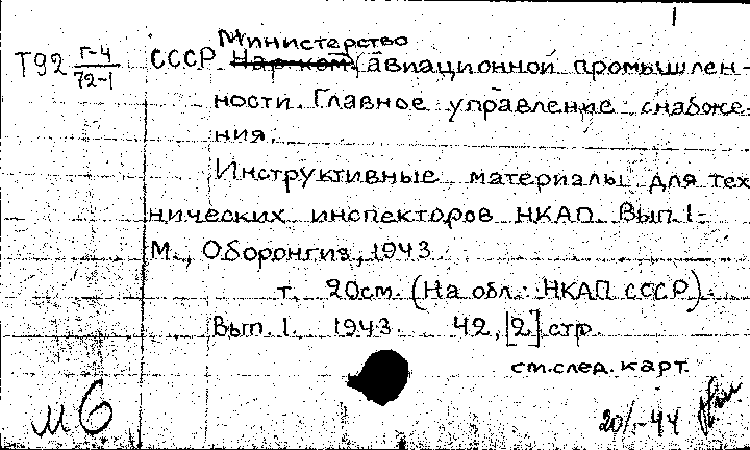 1
Министерство
Т92 Г-4/72-1 СССР Нар.ком. (авиационной промышлен-
ности. Главное управление снабже-
ния.
Инструктивные материалы для тех
нических инспекторов НКАП. Вып. 1-
М., Оборонгиз, 1943.
т. 20см. (На обл.: НКАП СССР).
Вып. 1. 1943. 42, [2] стр.
см. след. карт.
м6 20/-44